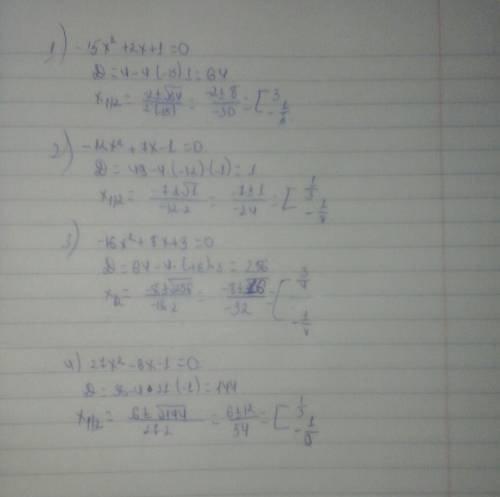 1) -15x² + 2x + 1 = 0
D = 4 - 4 (-15) 1 = 64
x1/2 = (-2 ± √64)/(2(-15)) = (-2 ± 8)/(-30) = [ 3
2) -12x² + 7x - 1 = 0
D = 49 - 4 (-12) (-1) = 1
x1/2 = (-7 ± √1)/(-12·2) = (-7 ± 1)/(-24) = [ 1/3
3) -16x² + 8x + 3 = 0
D = 64 - 4·(-16)·3 = 256
x1/2 = (-8 ± √256)/(-16·2) = (-8 ± 16)/(-32) = [ 3/4 -1/4
4) 27x² - 6x - 1 = 0
D = 36 - 4·27 (-1) = 144
x1/2 = (6 ± √144)/(27·2) = (6 ± 12)/54 = [ 1/3 -1/9